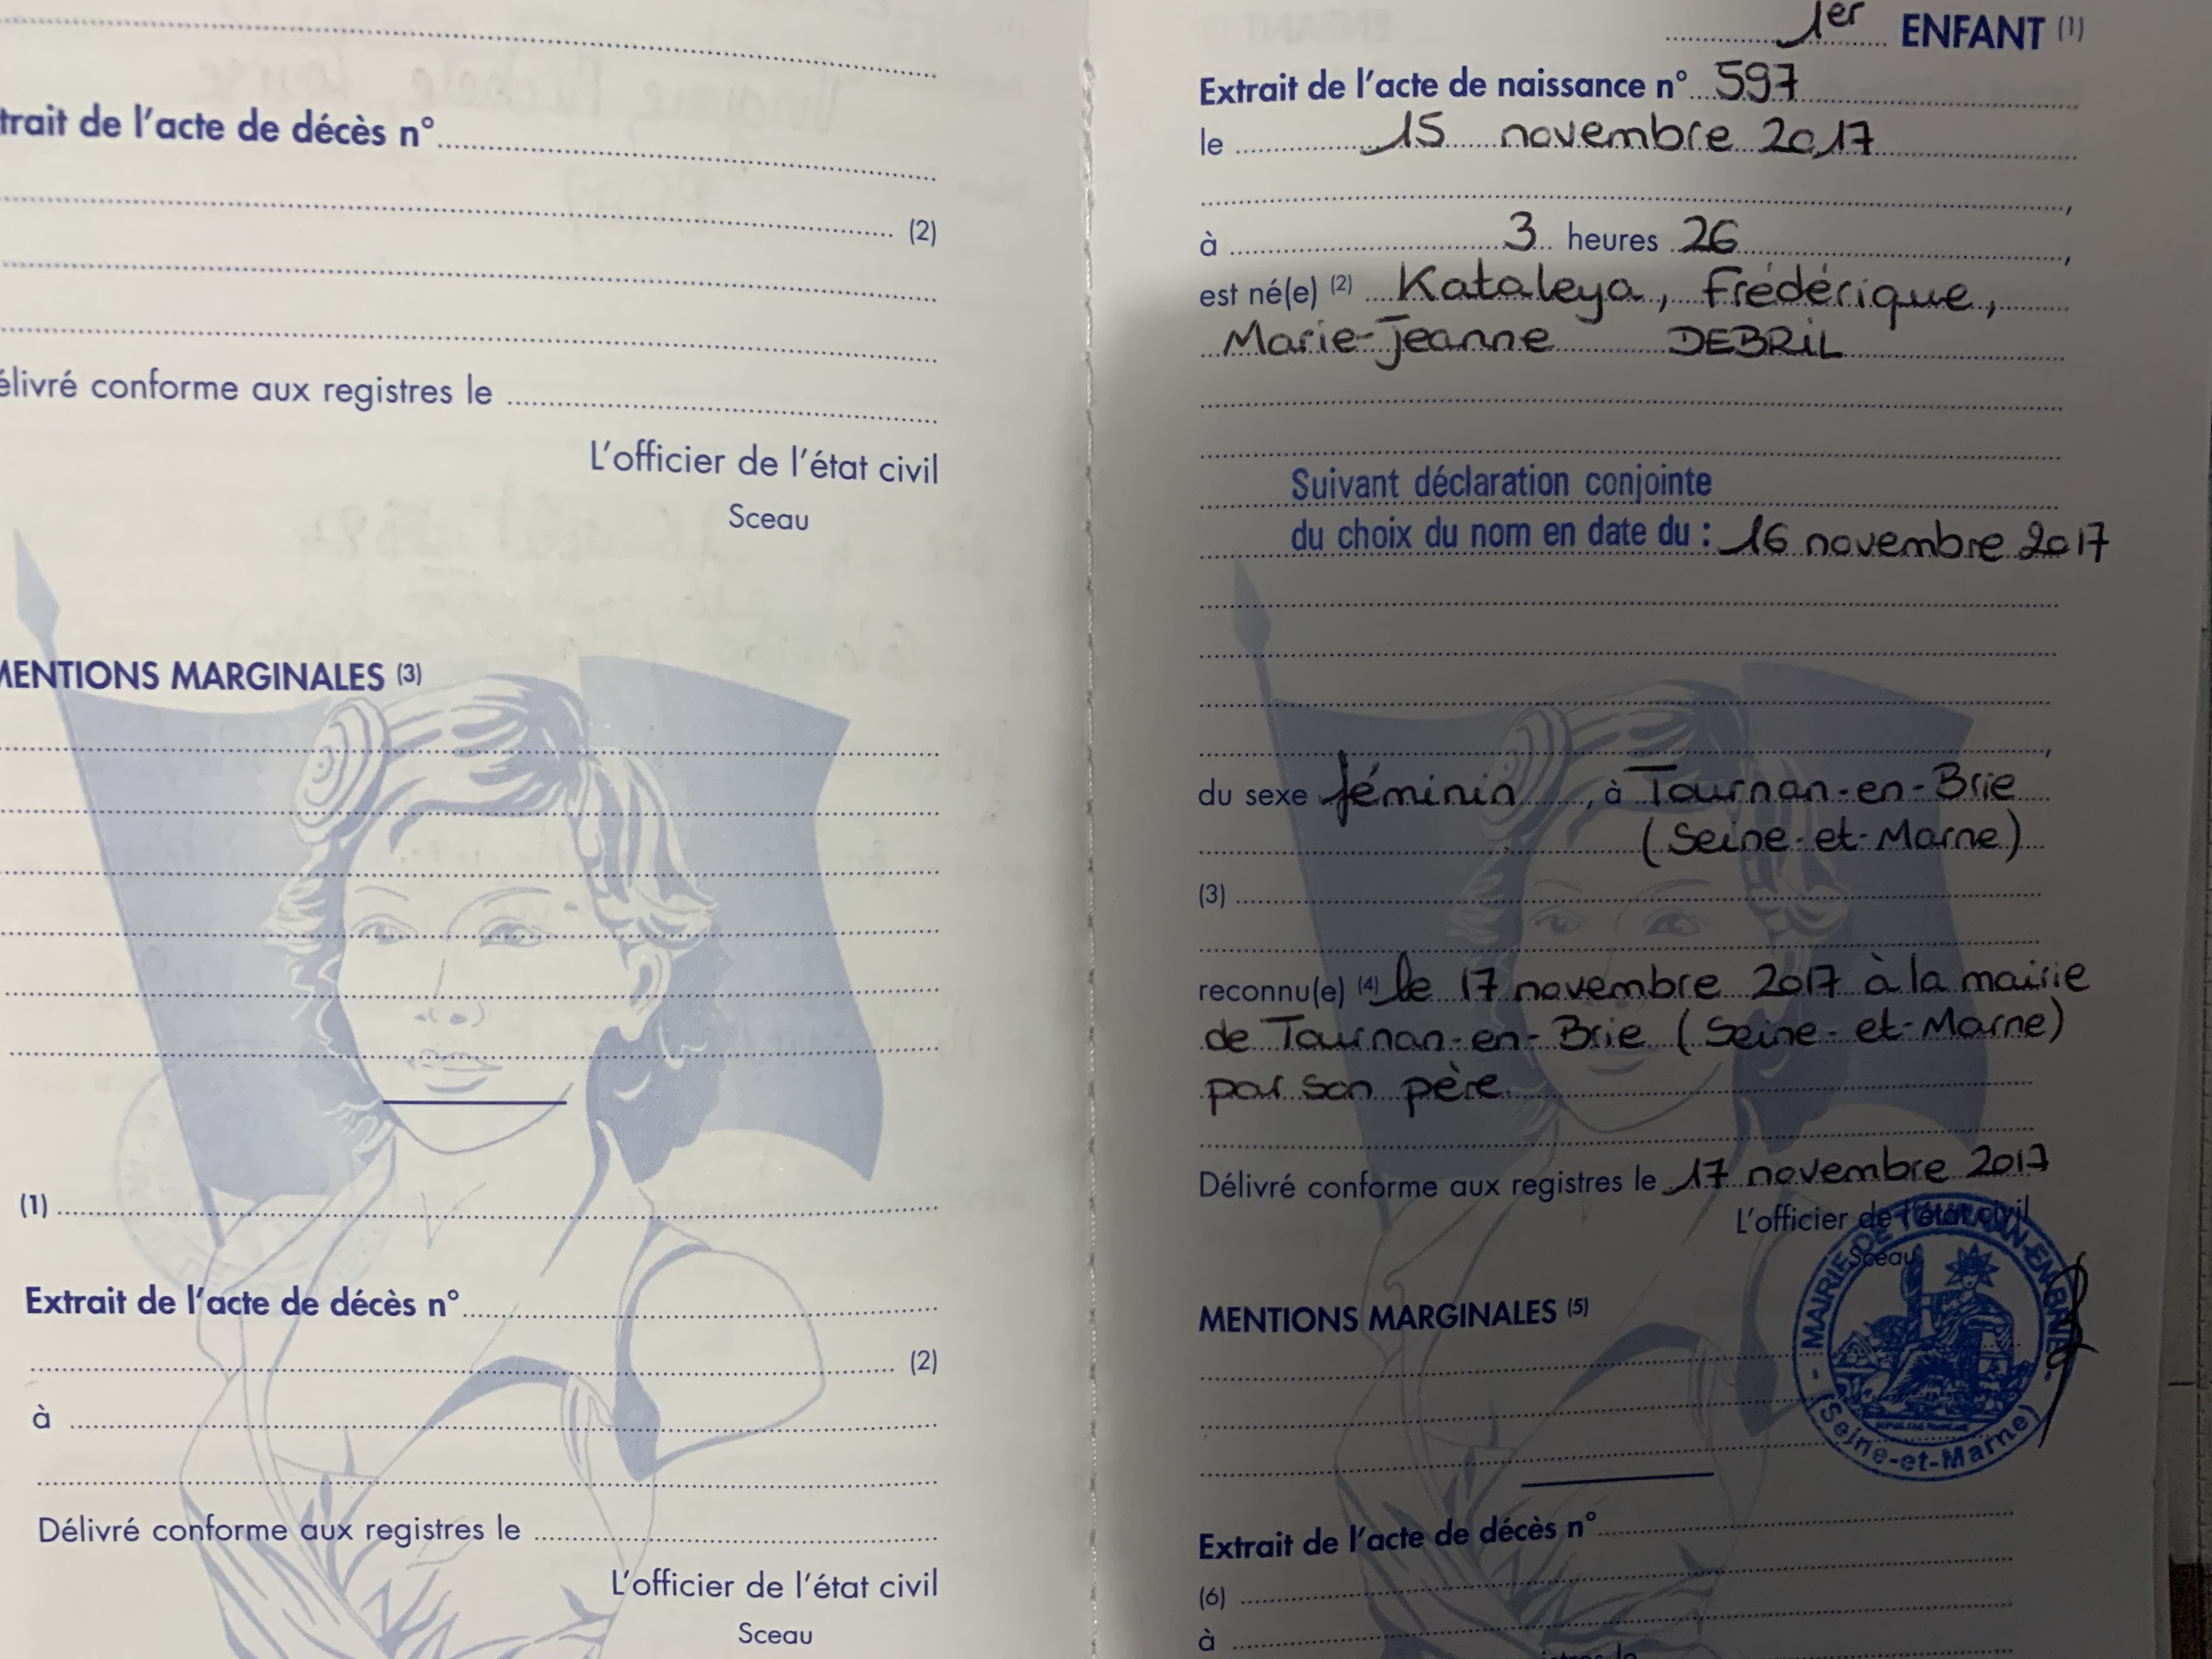 trait de l'acte de décès n°
(2)
élivré conforme aux registres le
L'officier de l'état civil
Sceau
MENTIONS MARGINALES (3)
(1)
Extrait de l'acte de décès n°
(2)
à
Délivré conforme aux registres le
L'officier de l'état civil
Sceau
1er ENFANT (1)
Extrait de l'acte de naissance n° 597
le 15 novembre 2017
,
à 3 heures 26 ,
est né(e) (2) Kataleya, Frédérique,
Marie-Jeanne DEBRIL
Suivant déclaration conjointe
du choix du nom en date du : 16 novembre 2017
,
du sexe féminin , à Tournan-en-Brie
(Seine-et-Marne)
(3)
reconnu(e) (4) le 17 novembre 2017 à la mairie
de Tournan-en-Brie (Seine-et-Marne)
par son père
Délivré conforme aux registres le 17 novembre 2017
L'officier de l'état civil
Sceau
- MAIRIE DE TOURNAN-EN-BRIE -
(Seine-et-Marne)
MENTIONS MARGINALES (5)
Extrait de l'acte de décès n°
(6)
à